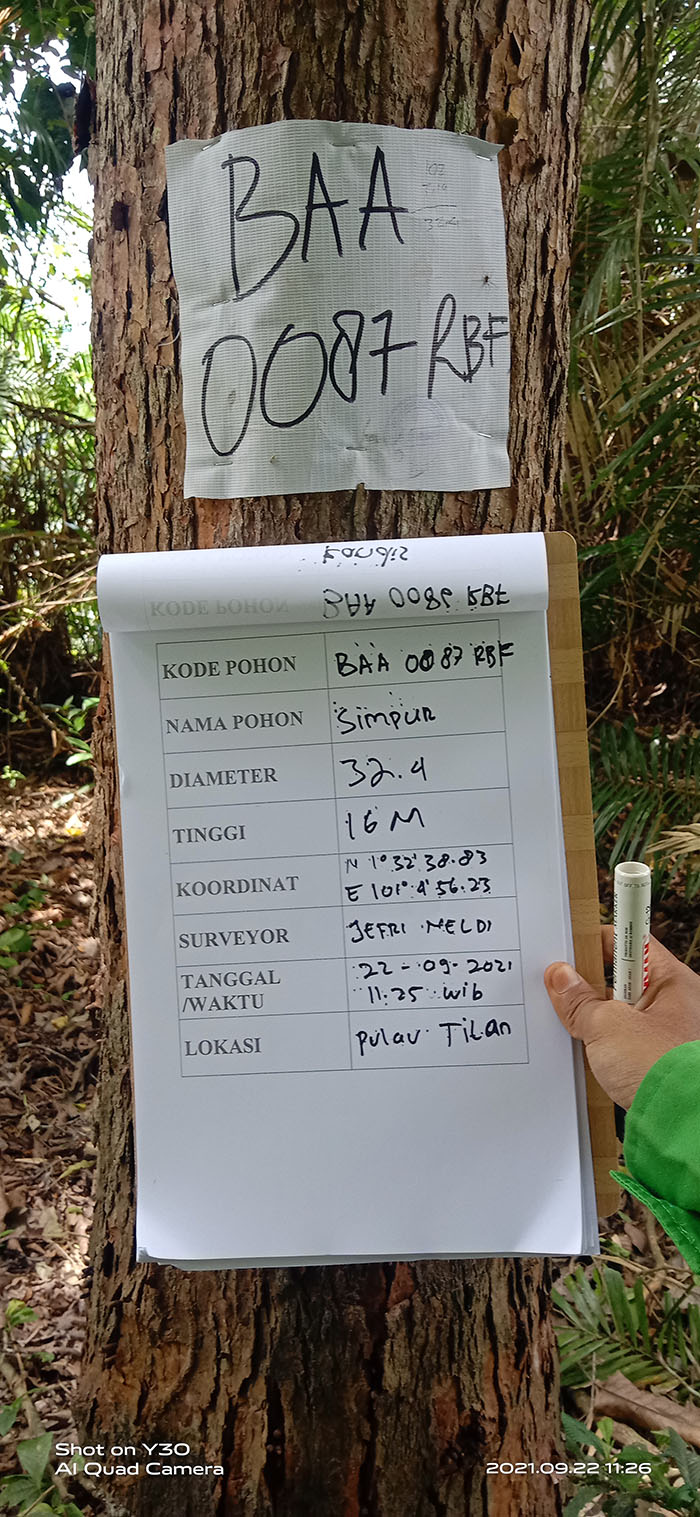 BAA
0087 RBF
Kandis
KODE POHON BAA 0086 RBF
KODE POHON BAA 0087 RBF
NAMA POHON Simpur
DIAMETER 32.4
TINGGI 16 M
KOORDINAT N 1° 32' 38.83
E 101° 4' 56.23
SURVEYOR JEFRI MELDI
TANGGAL
/WAKTU 22-09-2021
11:25 wib
LOKASI Pulau Tilan
Shot on Y30
AI Quad Camera
2021.09.22 11:26